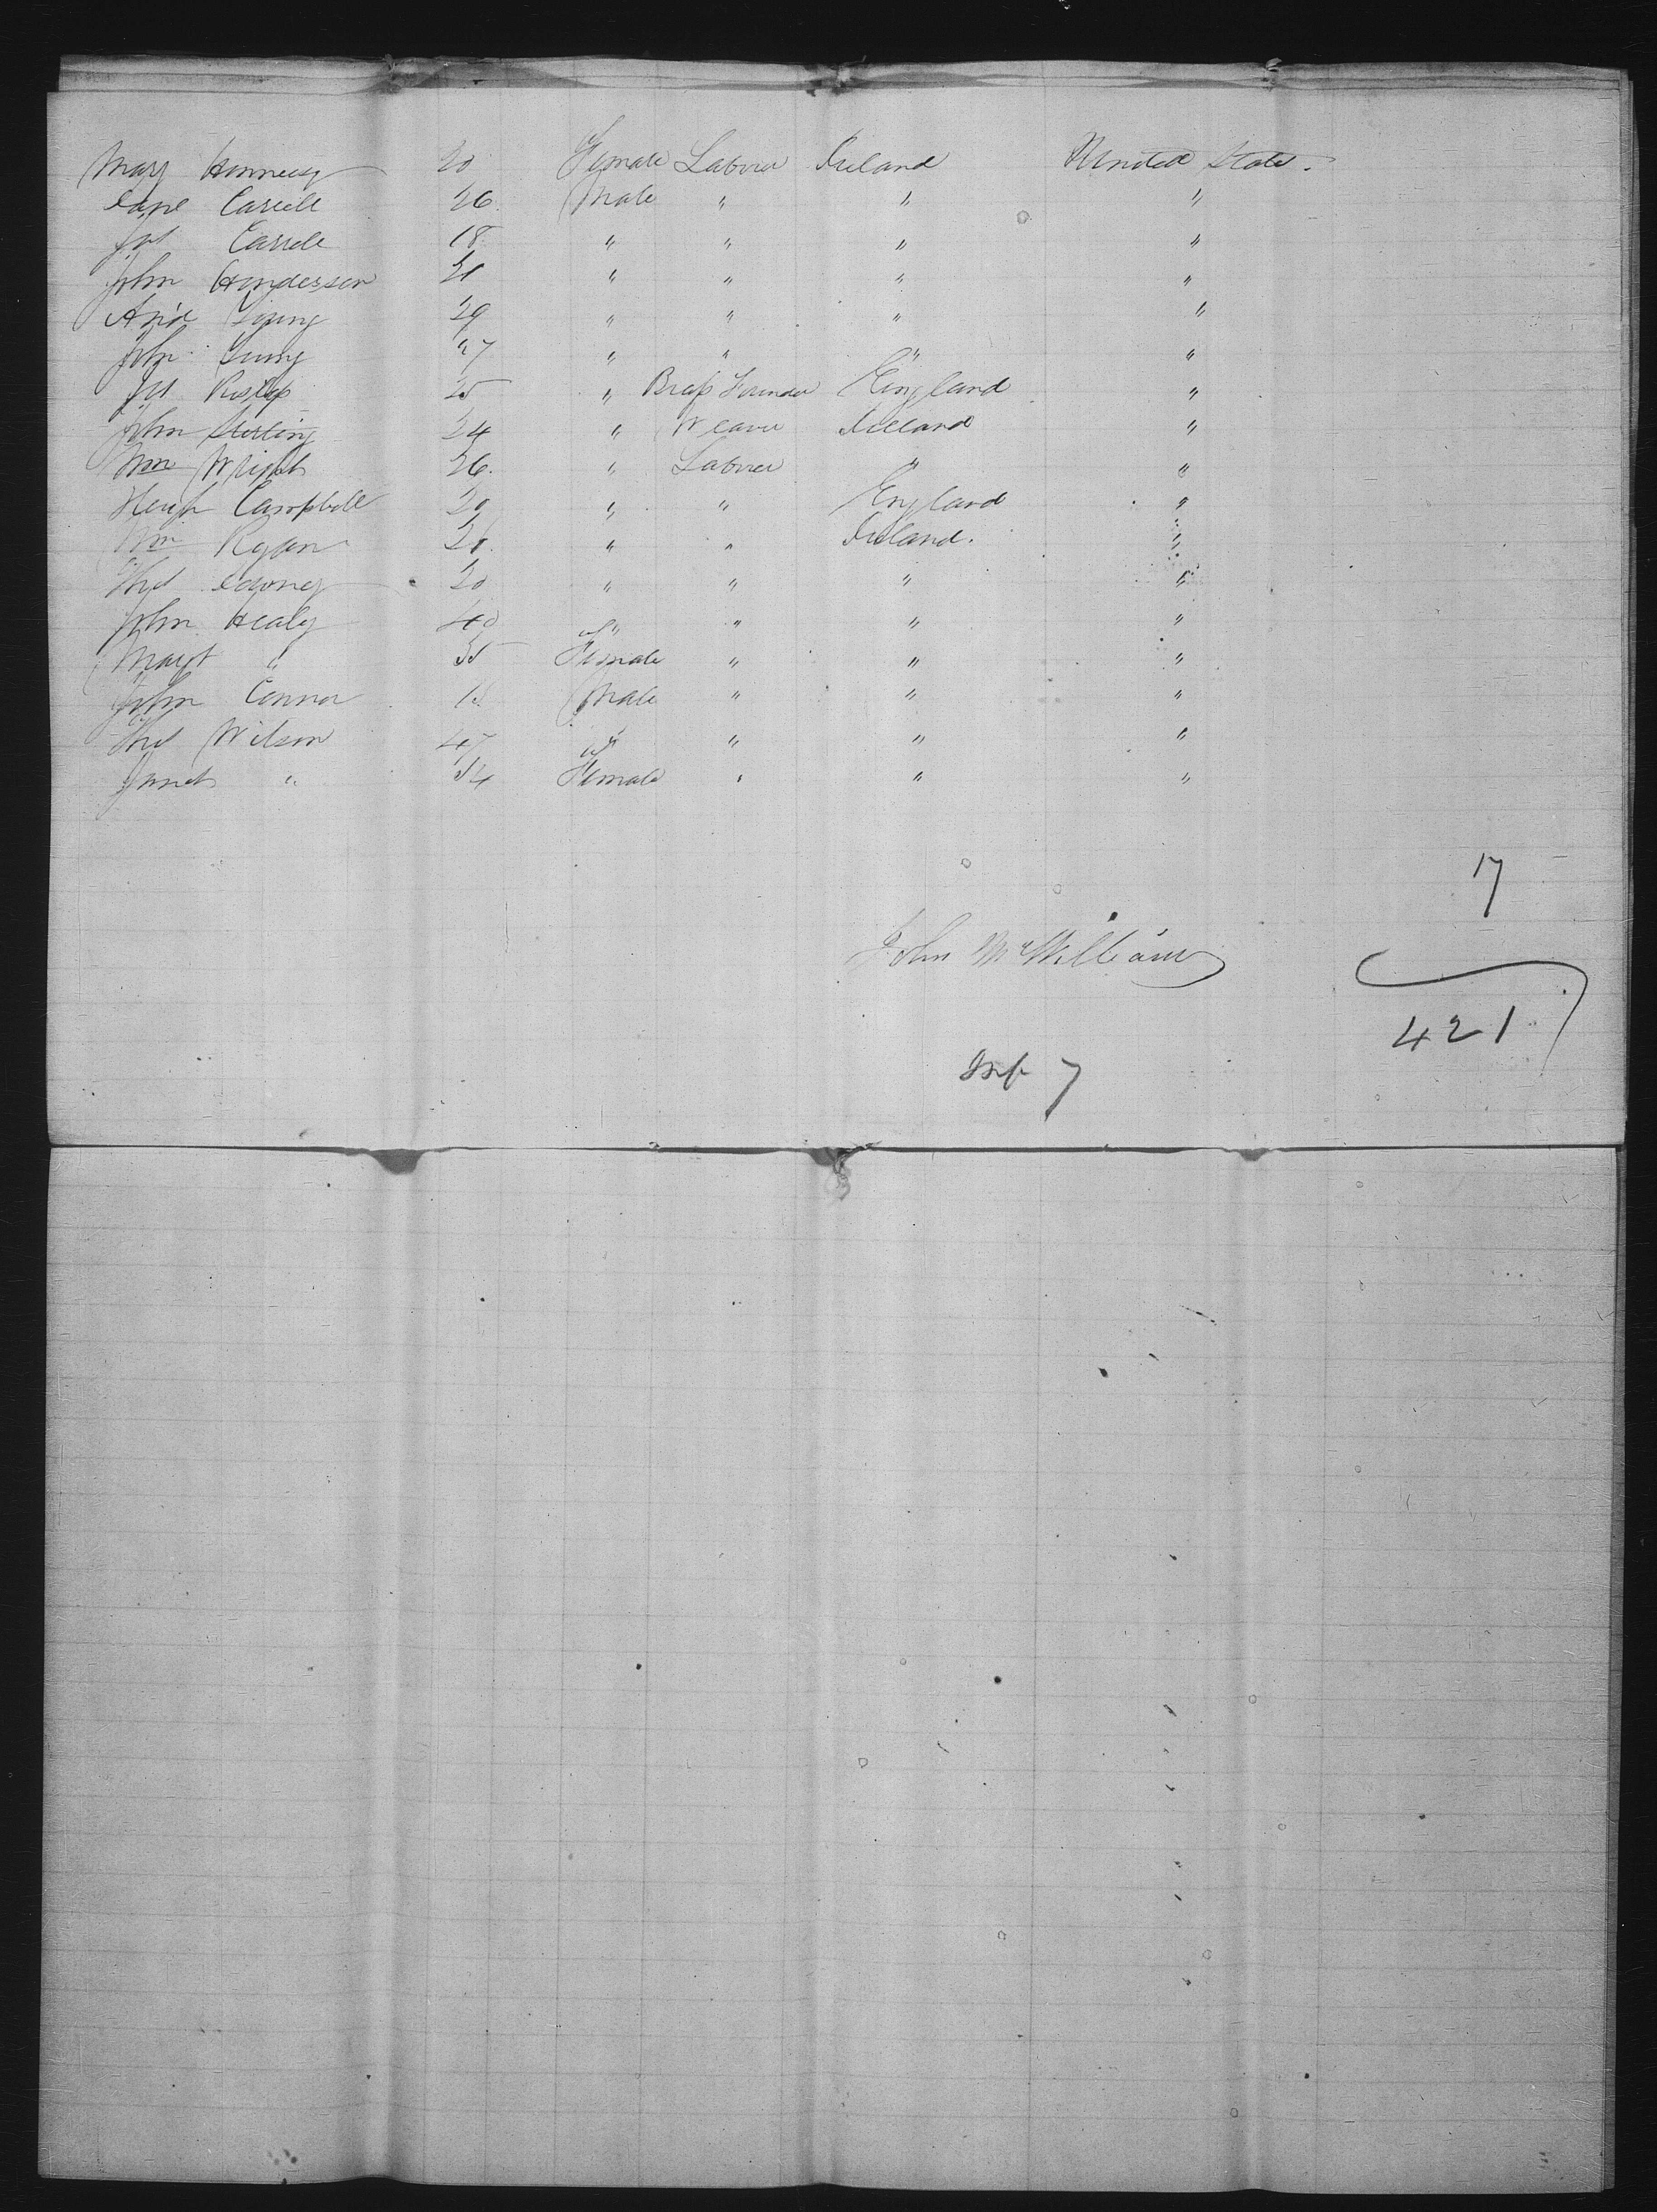 Mary Hennessy 20 Female Labourer Ireland United States.
Cassell 26 Male " " "
Jas Cassell 18 " " " "
John Henderson 21 " " " "
Young 29 " " " "
John Young 27 " " " "
25 " Brass Founder England "
John Sterling 24 " Weaver Ireland "
Wm Wright 26. " Labourer " "
Hugh Campbell 29 " " England "
Wm Ryan 21. " " Ireland. "
Thos 20 " " " "
John Healy 40 " " " "
Margt " 35 Female " " "
John Connor Male " " "
Thos Wilson 47 " " " "
Janet " 54 Female " " "
17
John McWilliams
421
Inf 7